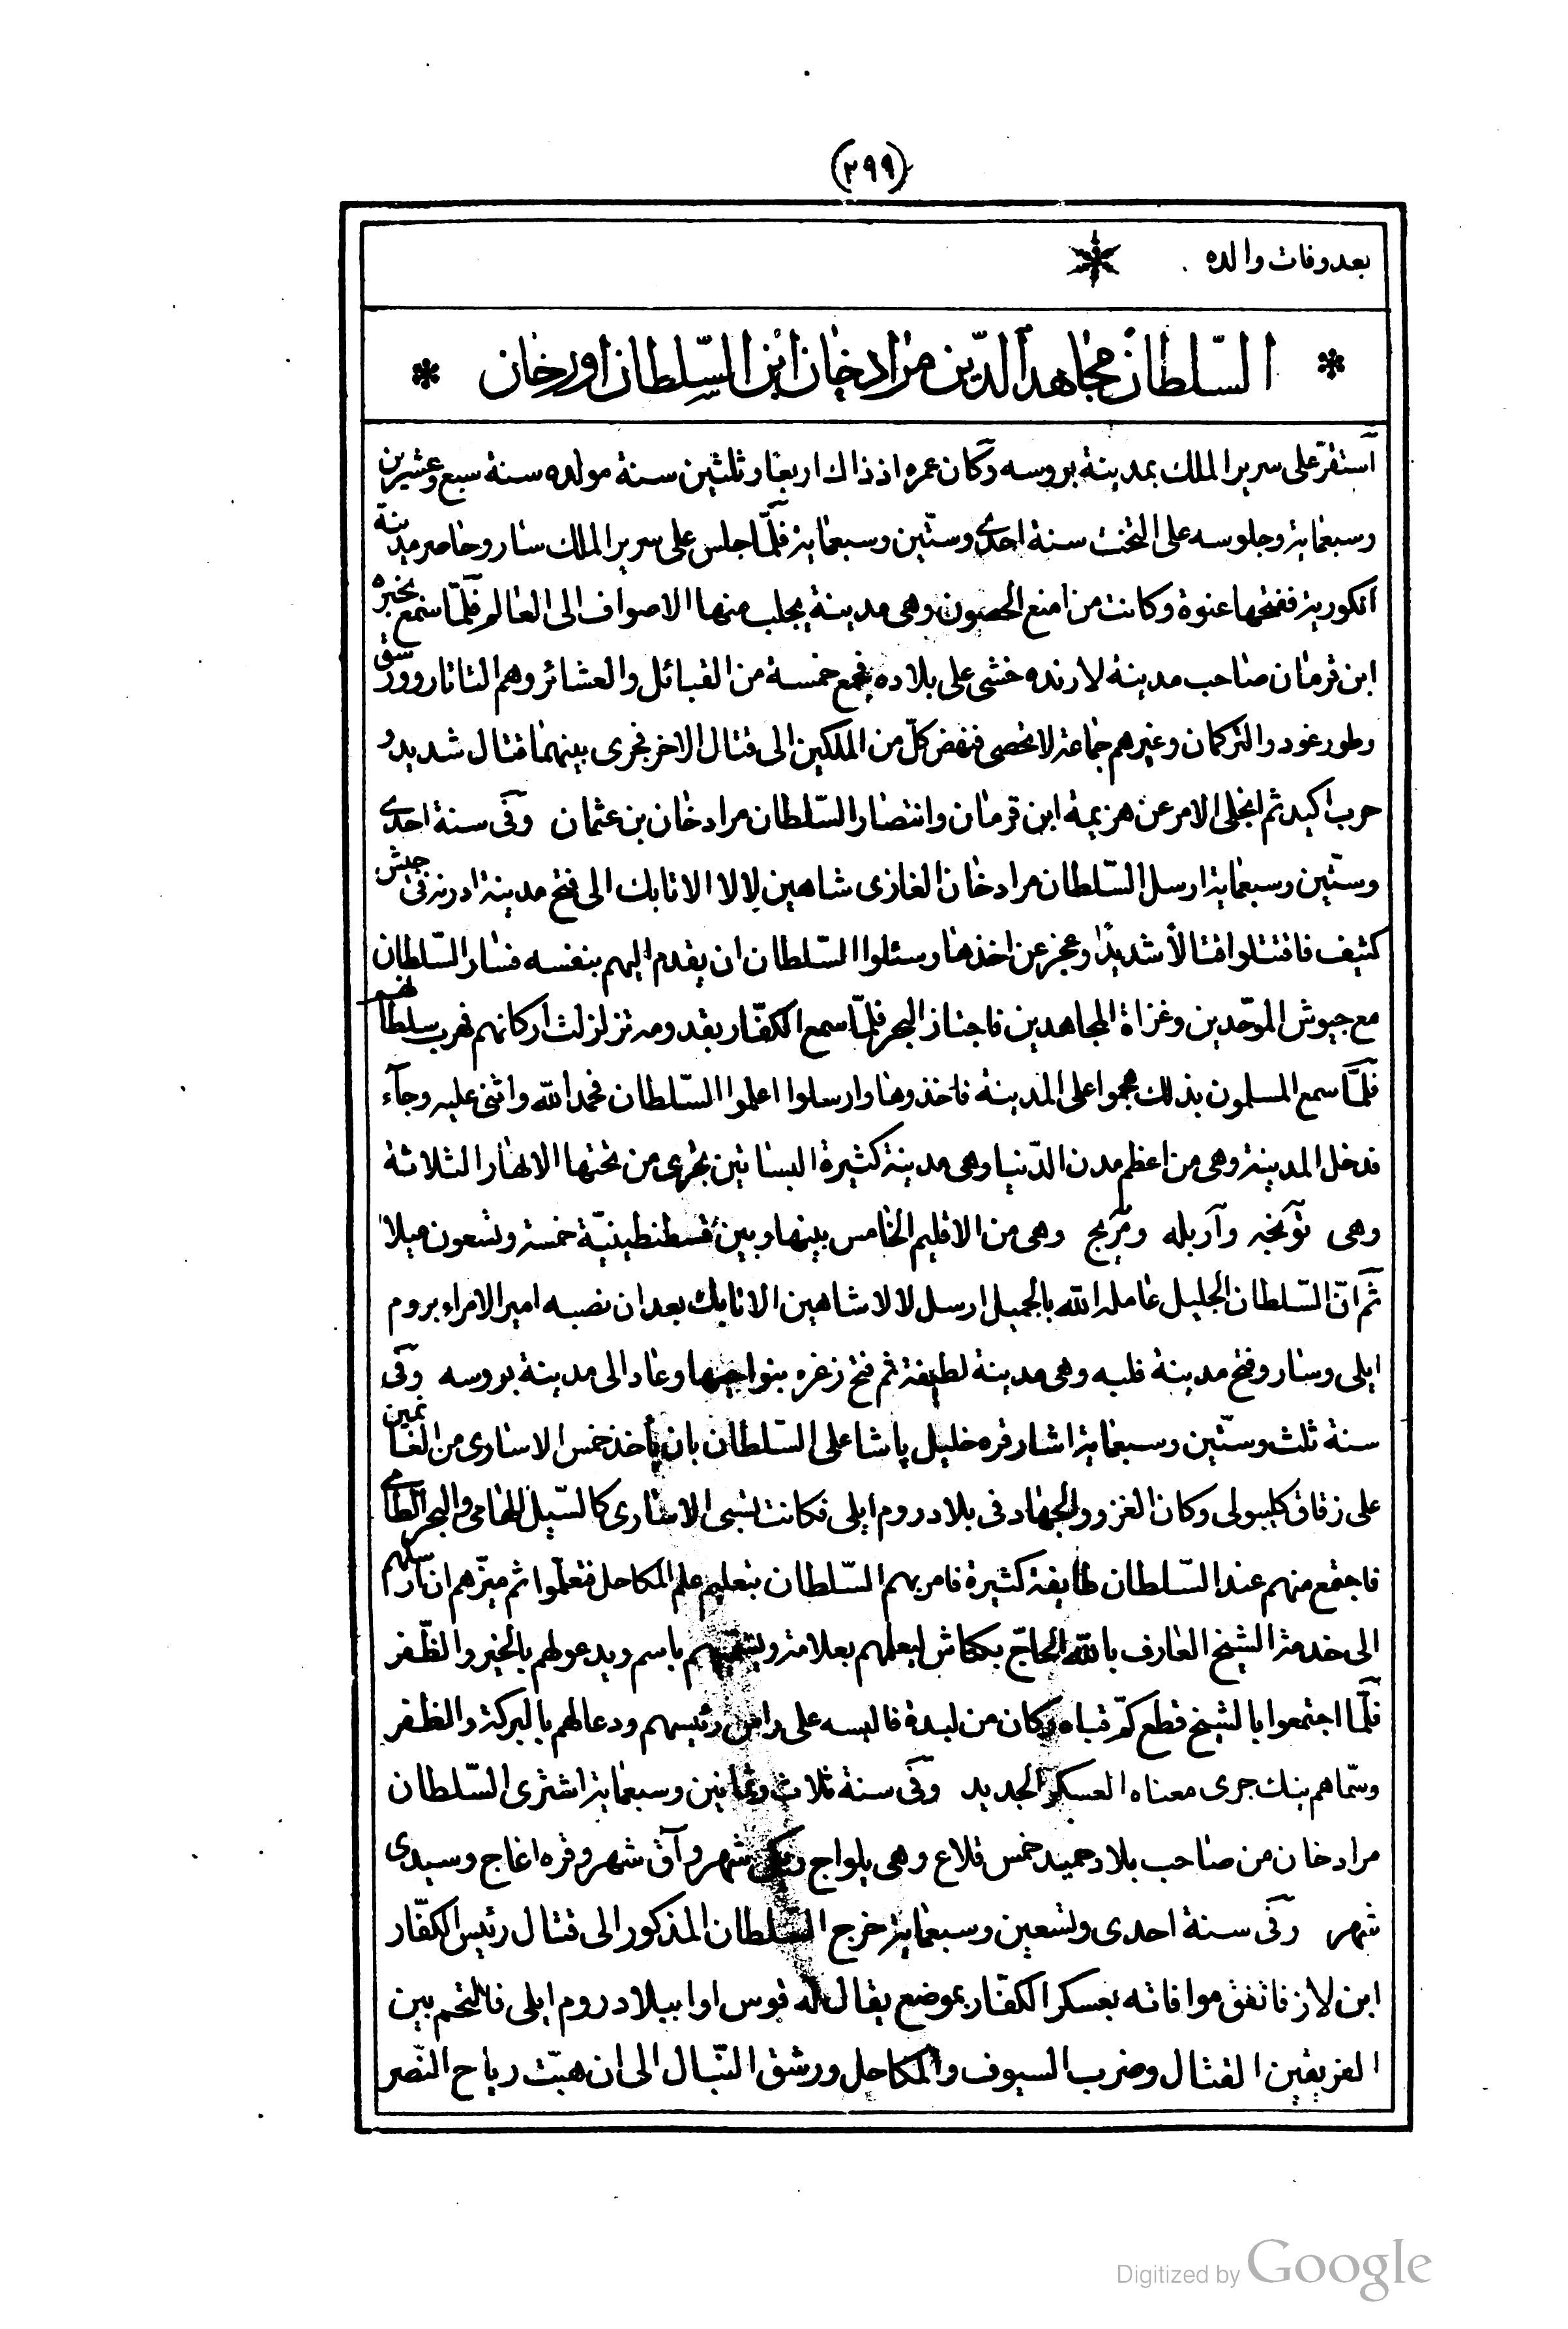 (٢٩٩)
بعد وفات والده
السّلطان مجاهد الدّين مراد خان ابن السّلطان اورخان
آستقرّ على سرير الملك بمدينة بروسه وكان عمره اذ ذاك اربعا وثلثين سنة مولده سنة سبع وعشرين
وسبعماية وجلوسه على التخت سنة احدى وستّين وسبعماية فلمّا جلس على سرير الملك سار وحاصر مدينة
انكورية ففتحها عنوة وكانت من امنع الحصون وهى مدينة يجلب منها الاصواف الى العالم فلمّا سمع بخبره
ابن قرمان صاحب مدينة لارنده خشى على بلاده فجمع خمسة من القبائل والعشائر وهم التاتار وورسق
وطورغود والتركمان وغيرهم جماعة لا تحصى فنهض كلّ من الملكين الى قتال الاخر فجرى بينهما قتال شديد و
حرب اكيد ثم انجلى الامر عن هزيمة ابن قرمان وانتصار السّلطان مراد خان بن عثمان وفى سنة احدى
وستّين وسبعماية ارسل السّلطان مراد خان الغازى شاهين لالا الاتابك الى فتح مدينة ادرنه فى جيش
كثيف فاقتتلوا قتالاً شديداً وعجز عن اخذها وسئلوا السّلطان ان يقدم اليهم بنفسه فسار السّلطان
مع جيوش الموحّدين وغزاة المجاهدين فاجتاز البحر فلمّا سمع الكفّار بقدومه تزلزلت اركانهم فهرب سلطانهم
فلمّا سمع المسلمون بذلك هجموا على المدينة فاخذوها وارسلوا اعلموا السّلطان فحمد الله واثنى عليه وجآء
فدخل المدينة وهى من اعظم مدن الدّنيا وهى مدينة كثيرة البساتين تجرى من تحتها الانهار الثلاثة
وهى تونجه وآربله ومريج وهى من الاقليم الخامس بينها وبين قسطنطينيّة خمسة وتسعون ميلا
ثمّ انّ السّلطان الجليل عامله الله بالجميل ارسل لالا شاهين الاتابك بعد ان نصبه امير الامراء بروم
ايلى وسار وفتح مدينة فلبه وهى مدينة لطيفة ثم فتح زغره بنواحيها وعاد الى مدينة بروسه وفى
سنة ثلث وستّين وسبعماية اشار قره خليل پاشا على السّلطان بان يأخذ خمس الاسارى من الغانمين
على زقاق كليبولى وكان الغزو والجهاد فى بلاد روم ايلى فكانت تسبى الاسارى كالسّيل الهامى والبحر الطّامى
فاجتمع منهم عند السّلطان طايفة كثيرة فامر بهم السّلطان بتعليم علم المكاحل فتعلّموا ثم ميّزهم ان ارسلهم
الى خدمة الشيخ العارف بالله الحاجّ بكتاش ليعلمهم بعلامة ويسمّيهم باسم ويدعو لهم بالخير والظّفر
فلمّا اجتمعوا بالشيخ قطع كمّ قباه وكان من لبدة فالبسه على راس رئيسهم ودعا لهم بالبركة والظفر
وسمّاهم ينك جرى معناه العسكر الجديد وفى سنة ثلاث وثمانين وسبعماية اشترى السّلطان
مراد خان من صاحب بلاد حميد خمس قلاع وهى يلواج ويكى شهر وآق شهر وقره اغاج وسيدى
شهر وفى سنة احدى وتسعين وسبعماية خرج السّلطان المذكور الى قتال رئيس الكفّار
ابن لاز فاتفق موافاته بعسكر الكفّار بموضع يقال له قوس اوا ببلاد روم ايلى فالتحم بين
الفريقين القتال وضرب السيوف والمكاحل ورشق النّبال الى ان هبّت رياح النّصر
Digitized by Google